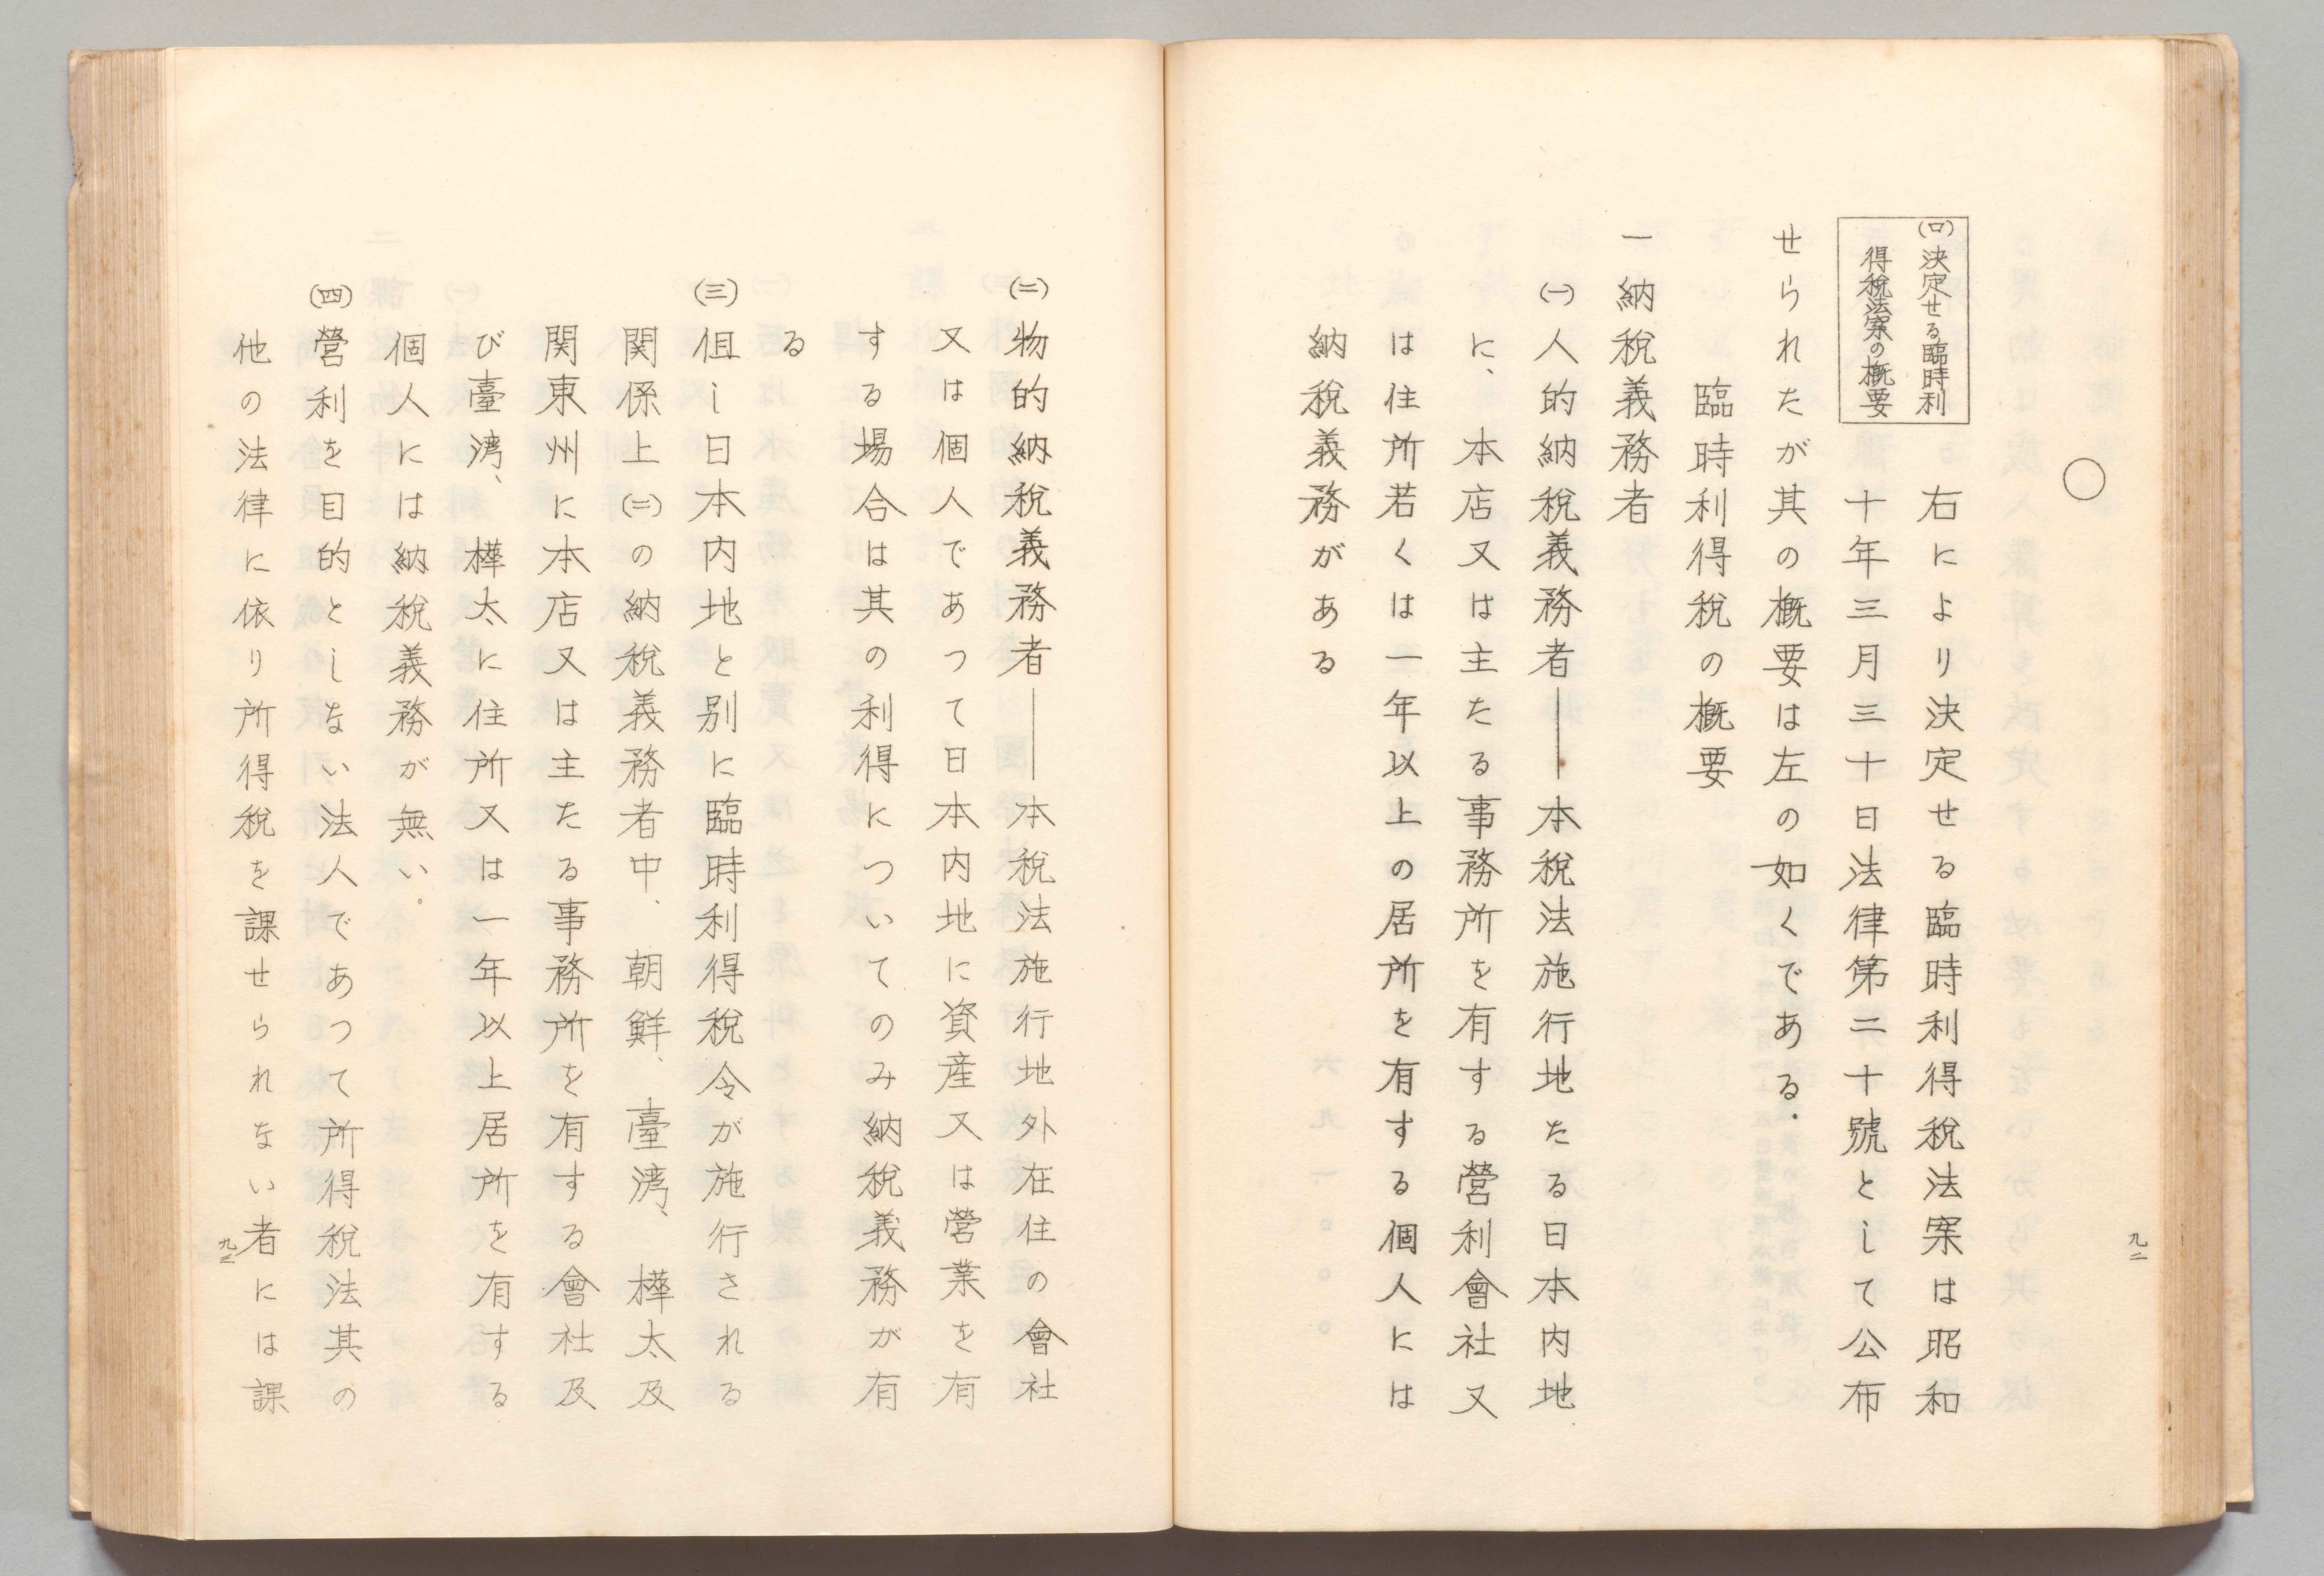 ○
(ロ)決定せる臨時利
得税法案の概要
右により決定せる臨時利得税法案は昭和
十年三月三十日法律第二十號として公布
せられたが其の概要は左の如くである.
臨時利得税の概要
一 納税義務者
(一)人的納税義務者——本税法施行地たる日本内地
に、本店又は主たる事務所を有する營利會社又
は住所若くは一年以上の居所を有する個人には
納税義務がある
九一
(二)物的納税義務者——本税法施行地外在住の會社
又は個人であつて日本内地に資産又は營業を有
する場合は其の利得についてのみ納税義務が有
る
(三)但し日本内地と別に臨時利得税令が施行される
関係上(二)の納税義務者中、朝鮮、臺湾、樺太及
関東州に本店又は主たる事務所を有する會社及
び臺湾、樺太に住所又は一年以上居所を有する
個人には納税義務が無い。
(四)營利を目的としない法人であつて所得税法其の
他の法律に依り所得税を課せられない者には課
九二